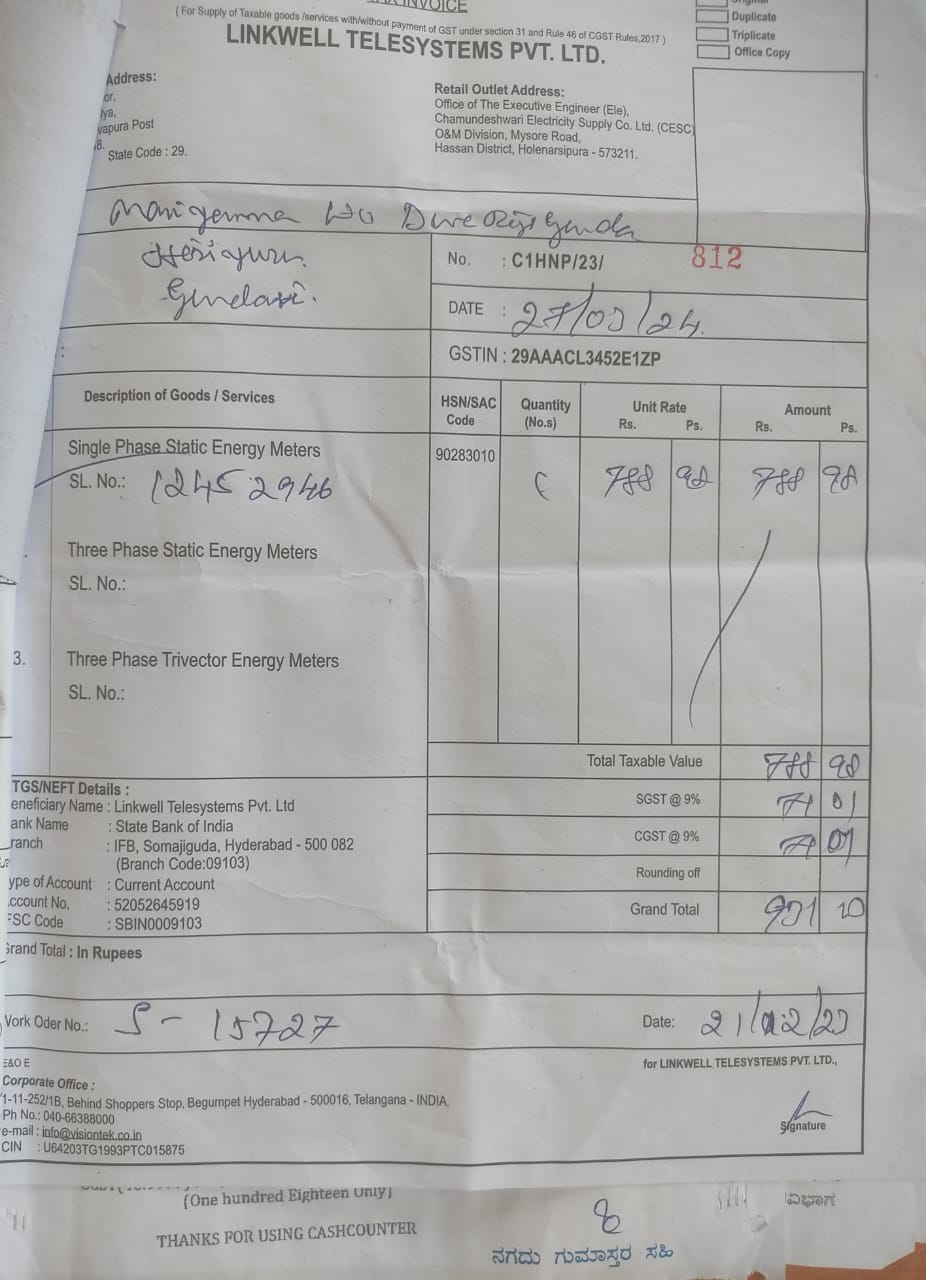 INVOICE
( For Supply of Taxable goods /services with/without payment of GST under section 31 and Rule 46 of CGST Rules,2017 )
LINKWELL TELESYSTEMS PVT. LTD.
Duplicate
Triplicate
Office Copy
Address:
or,
lya,
vapura Post
8.
State Code : 29.
Retail Outlet Address:
Office of The Executive Engineer (Ele),
Chamundeshwari Electricity Supply Co. Ltd. (CESC)
O&M Division, Mysore Road,
Hassan District, Holenarsipura - 573211.
No. : C1HNP/23/ 812
DATE : 27/03/24.
GSTIN : 29AAACL3452E1ZP
Description of Goods / Services HSN/SAC Code Quantity (No.s) Unit Rate Rs. Ps. Amount Rs. Ps.
Single Phase Static Energy Meters 90283010
SL. No.: 12452946 788 98 788 98
Three Phase Static Energy Meters
SL. No.:
3. Three Phase Trivector Energy Meters
SL. No.:
Total Taxable Value 788 98
SGST @ 9% 71 01
CGST @ 9% 71 01
Rounding off
Grand Total 931 10
TGS/NEFT Details :
eneficiary Name : Linkwell Telesystems Pvt. Ltd
ank Name : State Bank of India
ranch : IFB, Somajiguda, Hyderabad - 500 082
(Branch Code:09103)
ype of Account : Current Account
ccount No. : 52052645919
FSC Code : SBIN0009103
Grand Total : In Rupees
Work Oder No.: S - 15727 Date: 21/02/23
E&O E
for LINKWELL TELESYSTEMS PVT. LTD.,
Corporate Office :
1-11-252/1B, Behind Shoppers Stop, Begumpet Hyderabad - 500016, Telangana - INDIA,
Ph No.: 040-66388000
e-mail : info@visiontek.co.in
CIN : U64203TG1993PTC015875
Signature
(One hundred Eighteen Only)
THANKS FOR USING CASHCOUNTER
ವಿಭಾಗ
ನಗದು ಗುಮಾಸ್ತರ ಸಹಿ